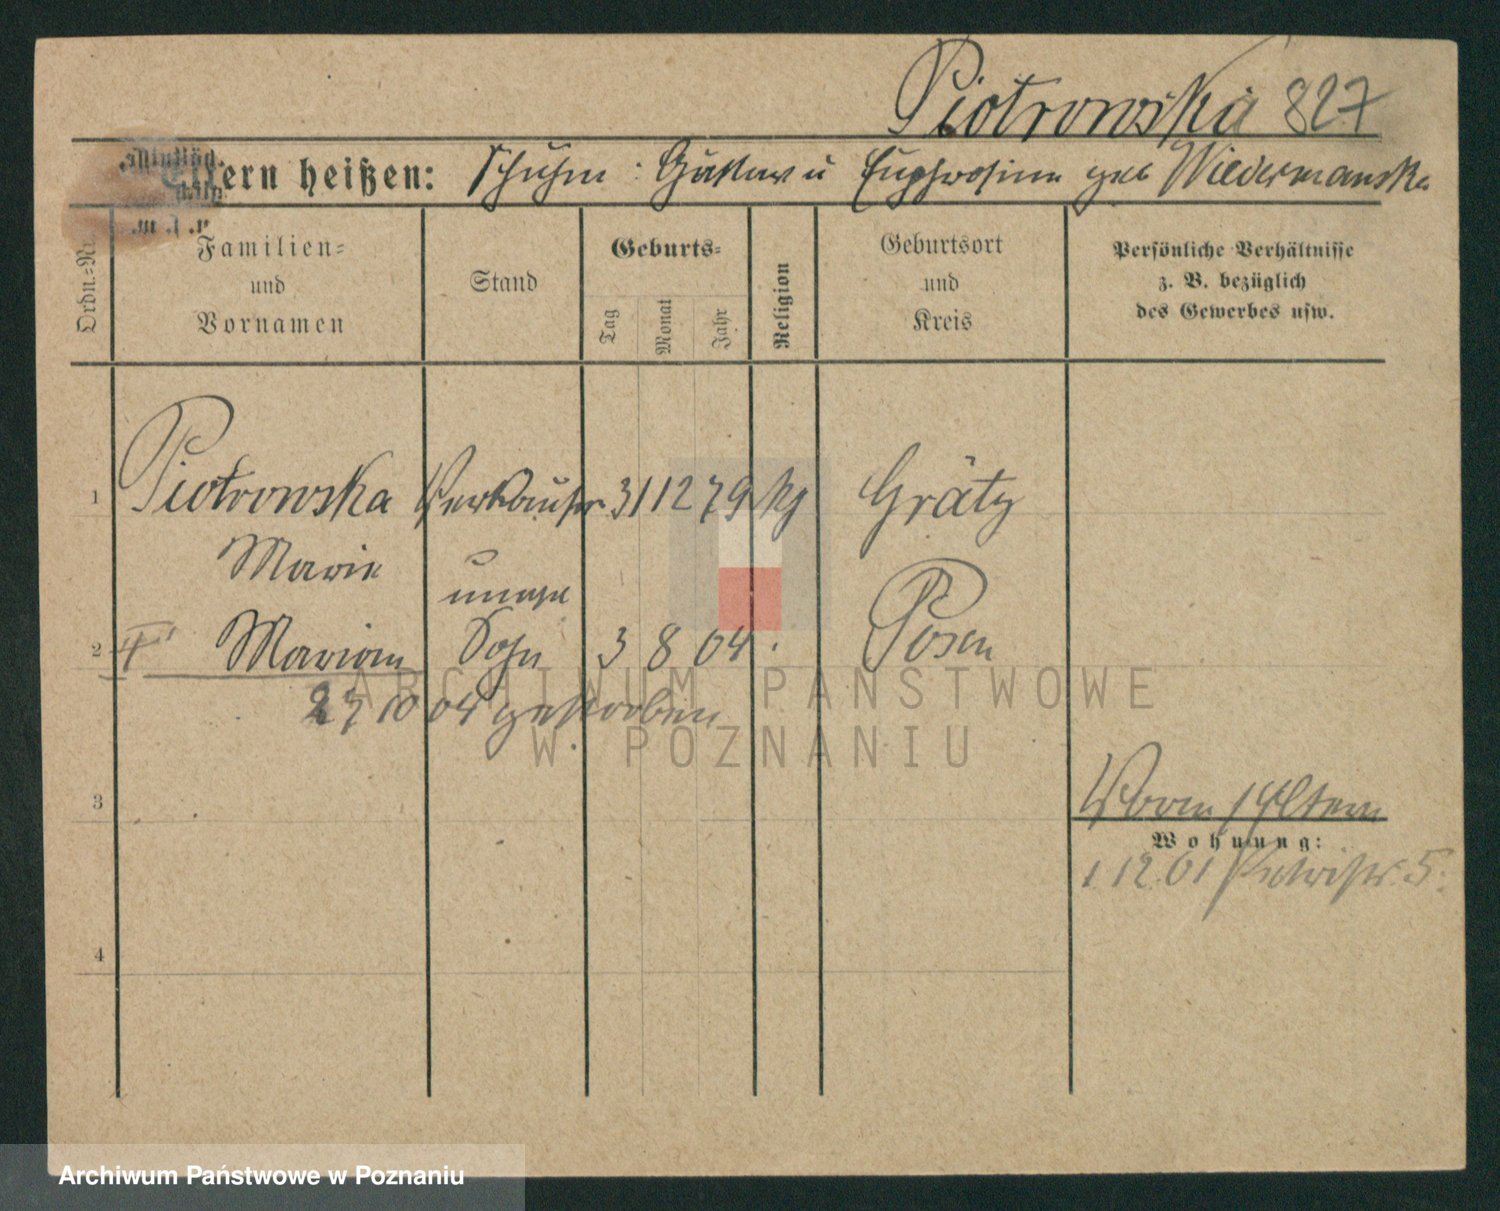 Piotrowska 827
Eltern heißen: Schuhm: Gustav u Euphrosine geb Wiedermanska
Ordn.-Nr.
Familien-
und
Vornamen
Stand
Geburts-
Tag
Monat
Jahr
Religion
Geburtsort
und
Kreis
Persönliche Verhältnisse
z. B. bezüglich
des Gewerbes usw.
1 Piotrowska Verkäufer 31 12 79 kg Grätz
Marie
2 Marian Sohn 3 8 04 Posen
27 10 04 gestorben
3
Vorm / Eltern
Wohnung:
1 12 01 5.
4
ARCHIWUM PAŃSTWOWE
W POZNANIU
Archiwum Państwowe w Poznaniu